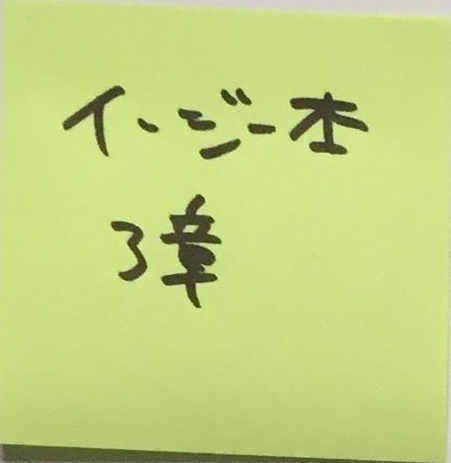 イージー本
3章